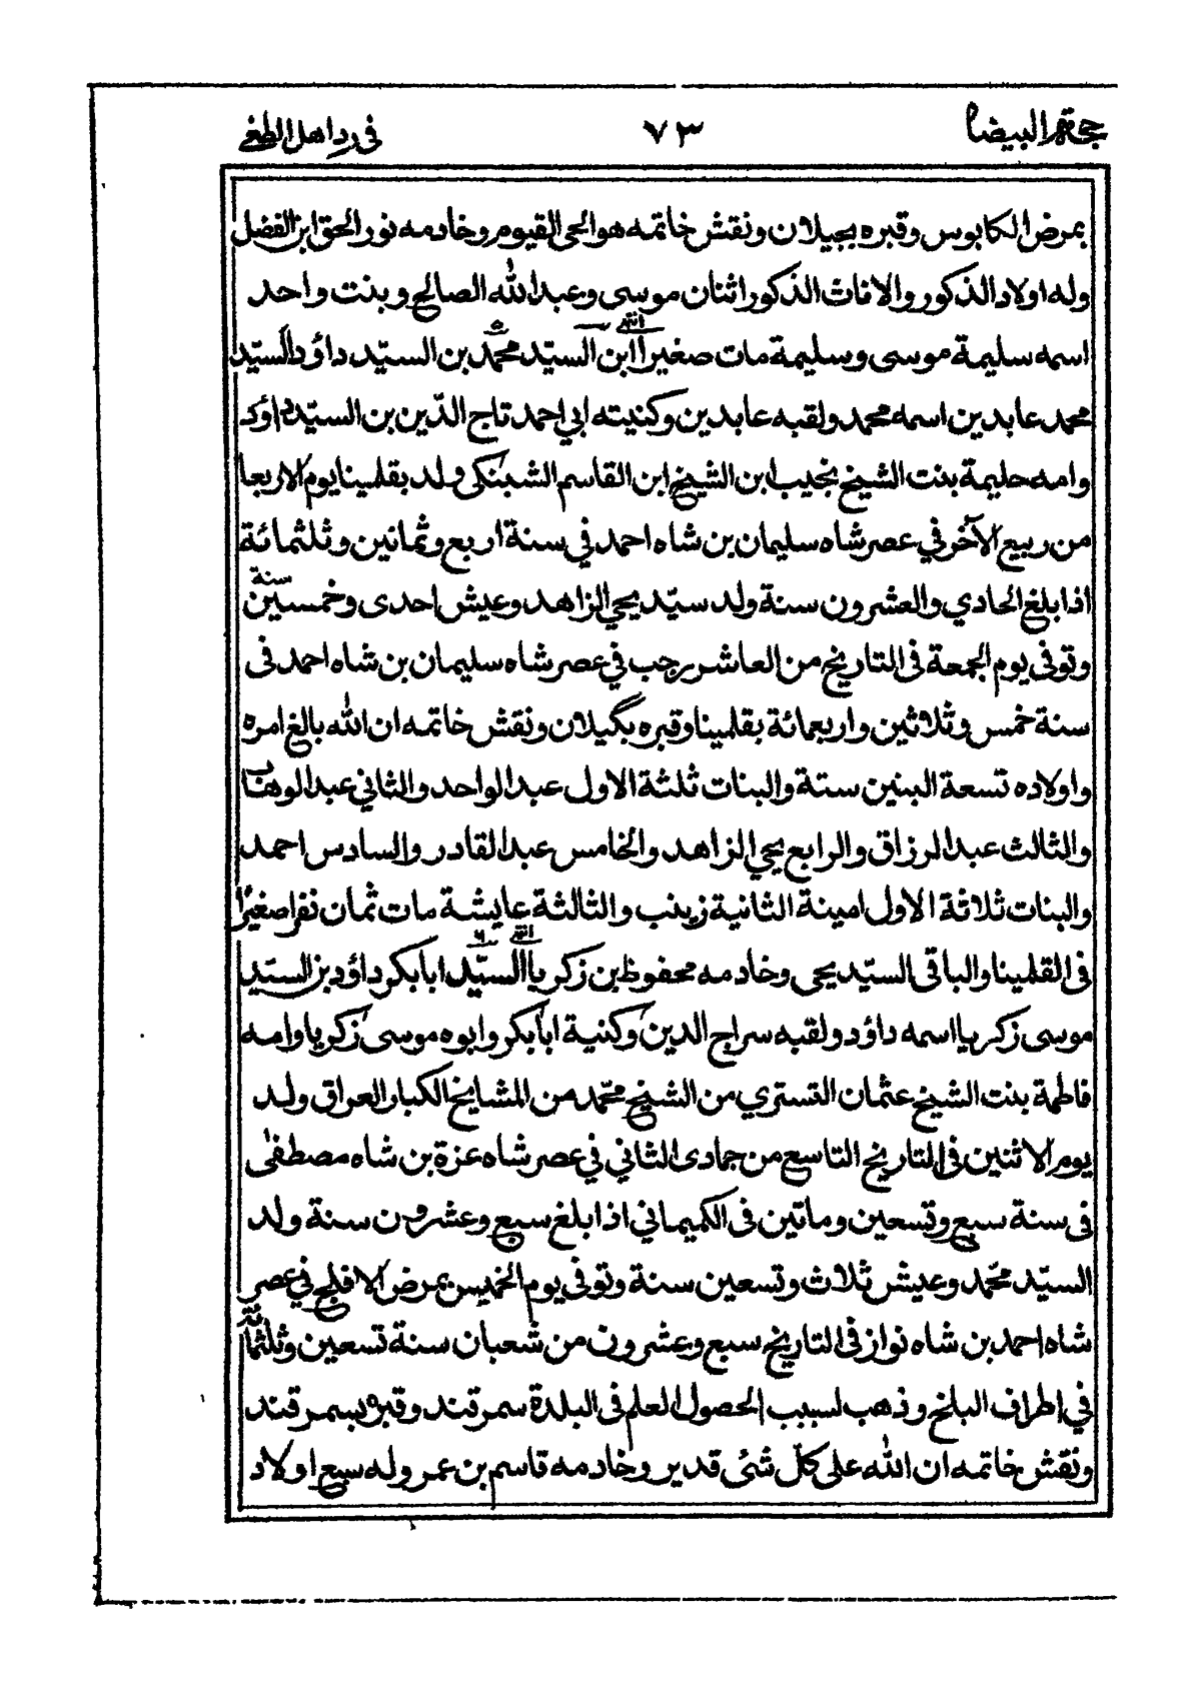 حجة البيضاء ٧٣ في رد اهل الطغى
بمرض الكابوس وقبره بجيلان ونقش خاتمه هو الحي القيوم وخادمه نور الحق ابن الفضل
وله اولاد الذكور والاناث الذكور اثنان موسى وعبد الله الصالح وبنت واحد
اسمه سليمة موسى وسليمة مات صغيرا ابن السيّد محمّد بن السيّد داؤد السيّد
محمد عابدين اسمه محمد ولقبه عابدين وكنيته ابي احمد تاج الدّين بن السيّد داؤد
وامه حليمة بنت الشيخ نجيب ابن الشيخ ابن القاسم الشبنكي ولد بقلمينا يوم الاربعا
من ربيع الآخر في عصر شاه سليمان بن شاه احمد في سنة اربع وثمانين وثلثمائة
اذا بلغ الحادي والعشرون سنة ولد سيّد يحي الزاهد وعيش احدى وخمسين سنة
وتوفى يوم الجمعة فى التاريخ من العاشر رجب في عصر شاه سليمان بن شاه احمد فى
سنة خمس وثلاثين واربعمائة بقلمينا وقبره بگيلان ونقش خاتمه ان الله بالغ امره
واولاده تسعة البنين ستة والبنات ثلثة الاول عبد الواحد والثاني عبد الوهاب
والثالث عبد الرزاق والرابع يحي الزاهد والخامس عبد القادر والسادس احمد
والبنات ثلاثة الاول امينة الثانية زينب والثالثة عايشة مات ثمان نفر صغيرًا
فى القلمينا والباقى السيّد يحى وخادمه محفوظ بن زكريا السيّد ابابكر داؤد بن السيّد
موسى زكريا اسمه داؤد ولقبه سراج الدين وكنية ابابكر وابوه موسى زكريا وامه
فاطمة بنت الشيخ عثمان التستري من الشيخ محمّد من المشايخ الكبار العراق ولد
يوم الاثنين فى التاريخ التاسع من جمادى الثاني في عصر شاه عزة بن شاه مصطفى
فى سنة سبع وتسعين وماتين فى الكميماني اذا بلغ سبع وعشرون سنة ولد
السيّد محمّد وعيش ثلاث وتسعين سنة وتوفى يوم الخميس بمرض الافلج في عصر
شاه احمد بن شاه نواز فى التاريخ سبع وعشرون من شعبان سنة تسعين وثلثمائة
في اطراف البلخ وذهب لسبب الحصول العلم فى البلدة سمرقند وقبره بسمرقند
ونقش خاتمه ان الله على كلّ شئى قدير وخادمه قاسم بن عمر وله سبع اولاد